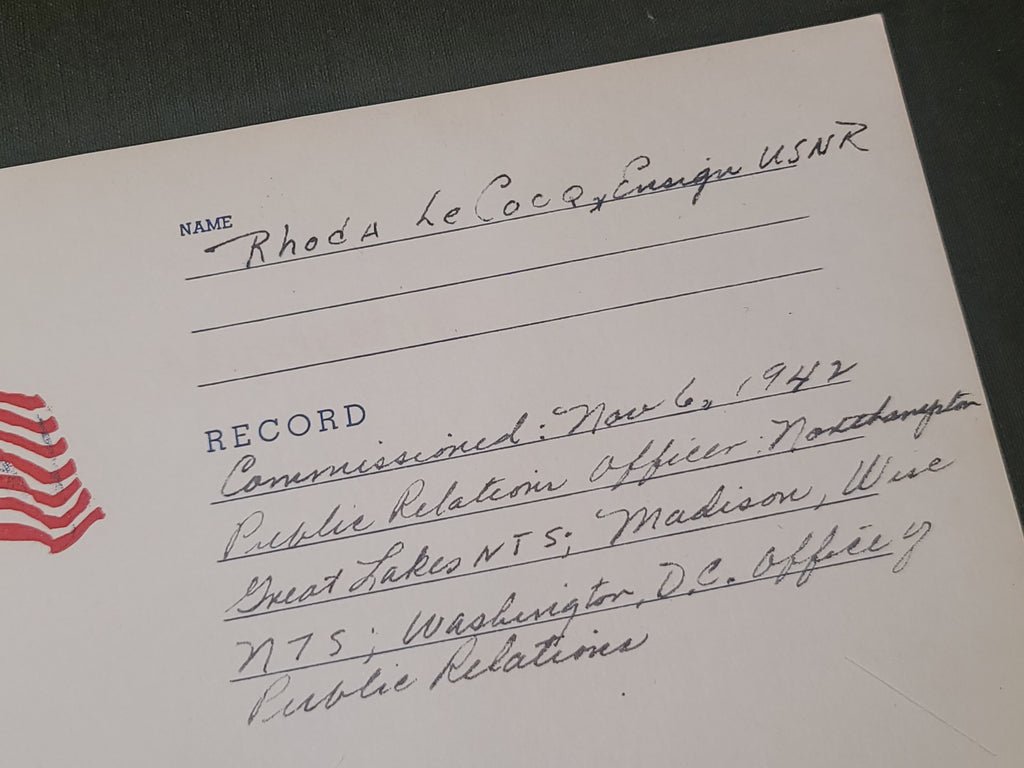 NAME
Rhoda Le Cocq, Ensign USNR
RECORD
Commissioned: Nov 6, 1942
Public Relations Officer: Northampton
Great Lakes NTS; Madison, Wisc
NTS; Washington, D.C. Office of
Public Relations